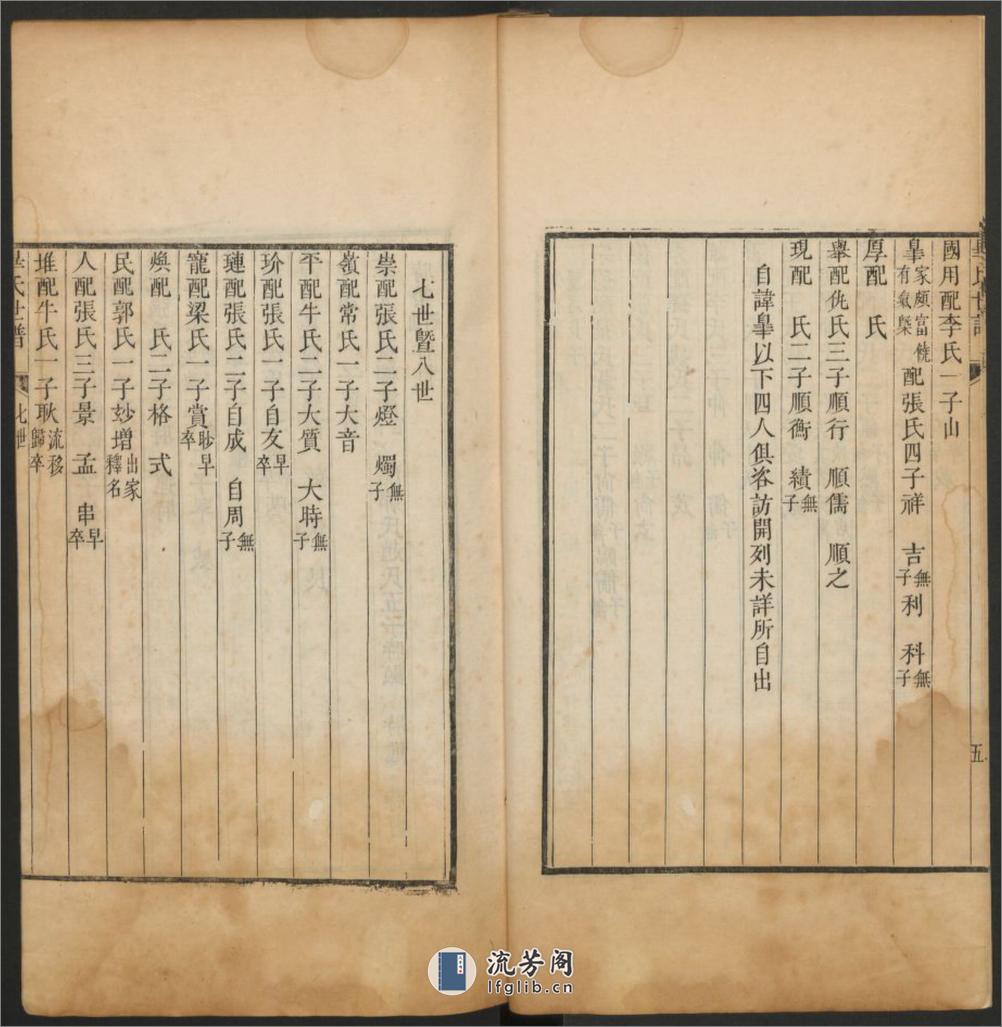 國用配李氏一子山
皐家頗富饒有氣槩配張氏四子祥　吉無子利　科無子
厚配　氏
舉配仇氏三子順行　順儒　順之
現配　氏二子順衡　績無子
自諱皐以下四人俱咨訪開列未詳所自出
氏世譜
五
七世暨八世
崇配張氏二子燈　燭無子
嶺配常氏一子大音
平配牛氏二子大質　大時無子
玠配張氏一子自友早卒
璉配張氏二子自成　自周無子
寵配梁氏一子賞眇早卒
煥配　氏二子格　式
民配郭氏一子妙增出家釋名
人配張氏三子景　孟　串早卒
堆配牛氏一子耿流移歸卒
氏世譜
七世
流芳阁
lfglib.cn